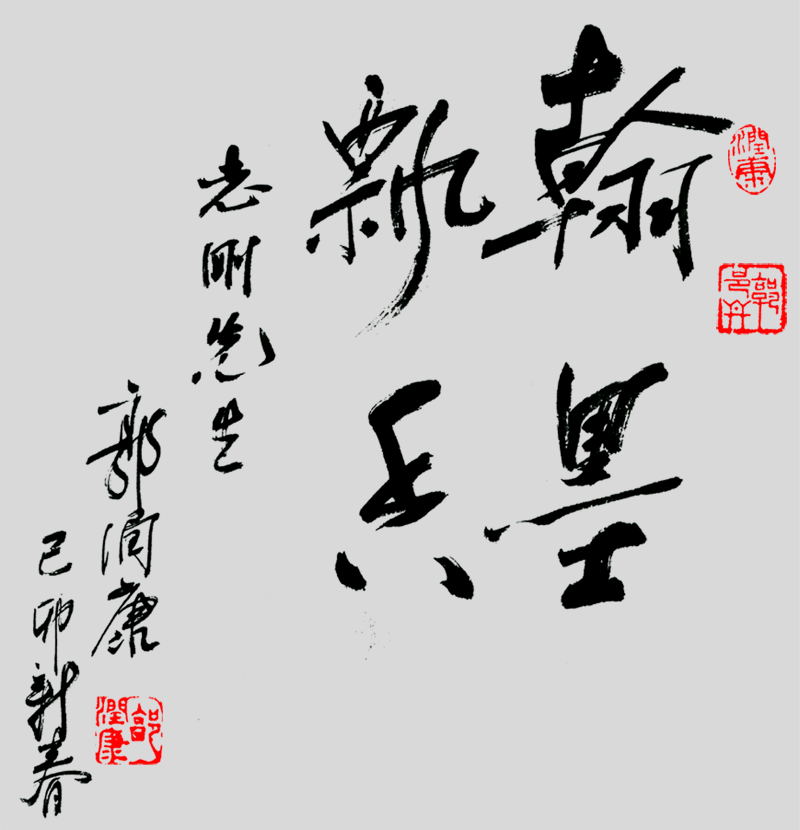 潤康
郭
翰墨
飘香
志刚先生
郭润康
己卯新春
郭潤康